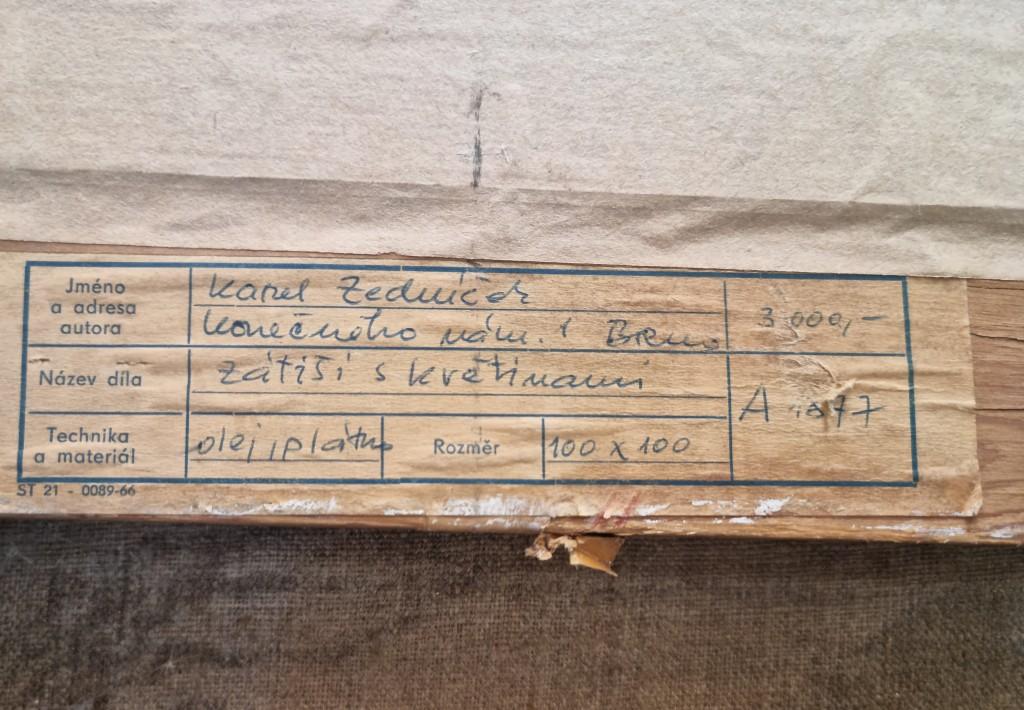 Jméno
a adresa
autora
Karel Zedníček
Konečného nám. 1 Brno
3 000,-
Název díla
zátiší s květinami
A
Technika
a materiál
olej, plátno
Rozměr
100 x 100
ST 21 - 0089-66